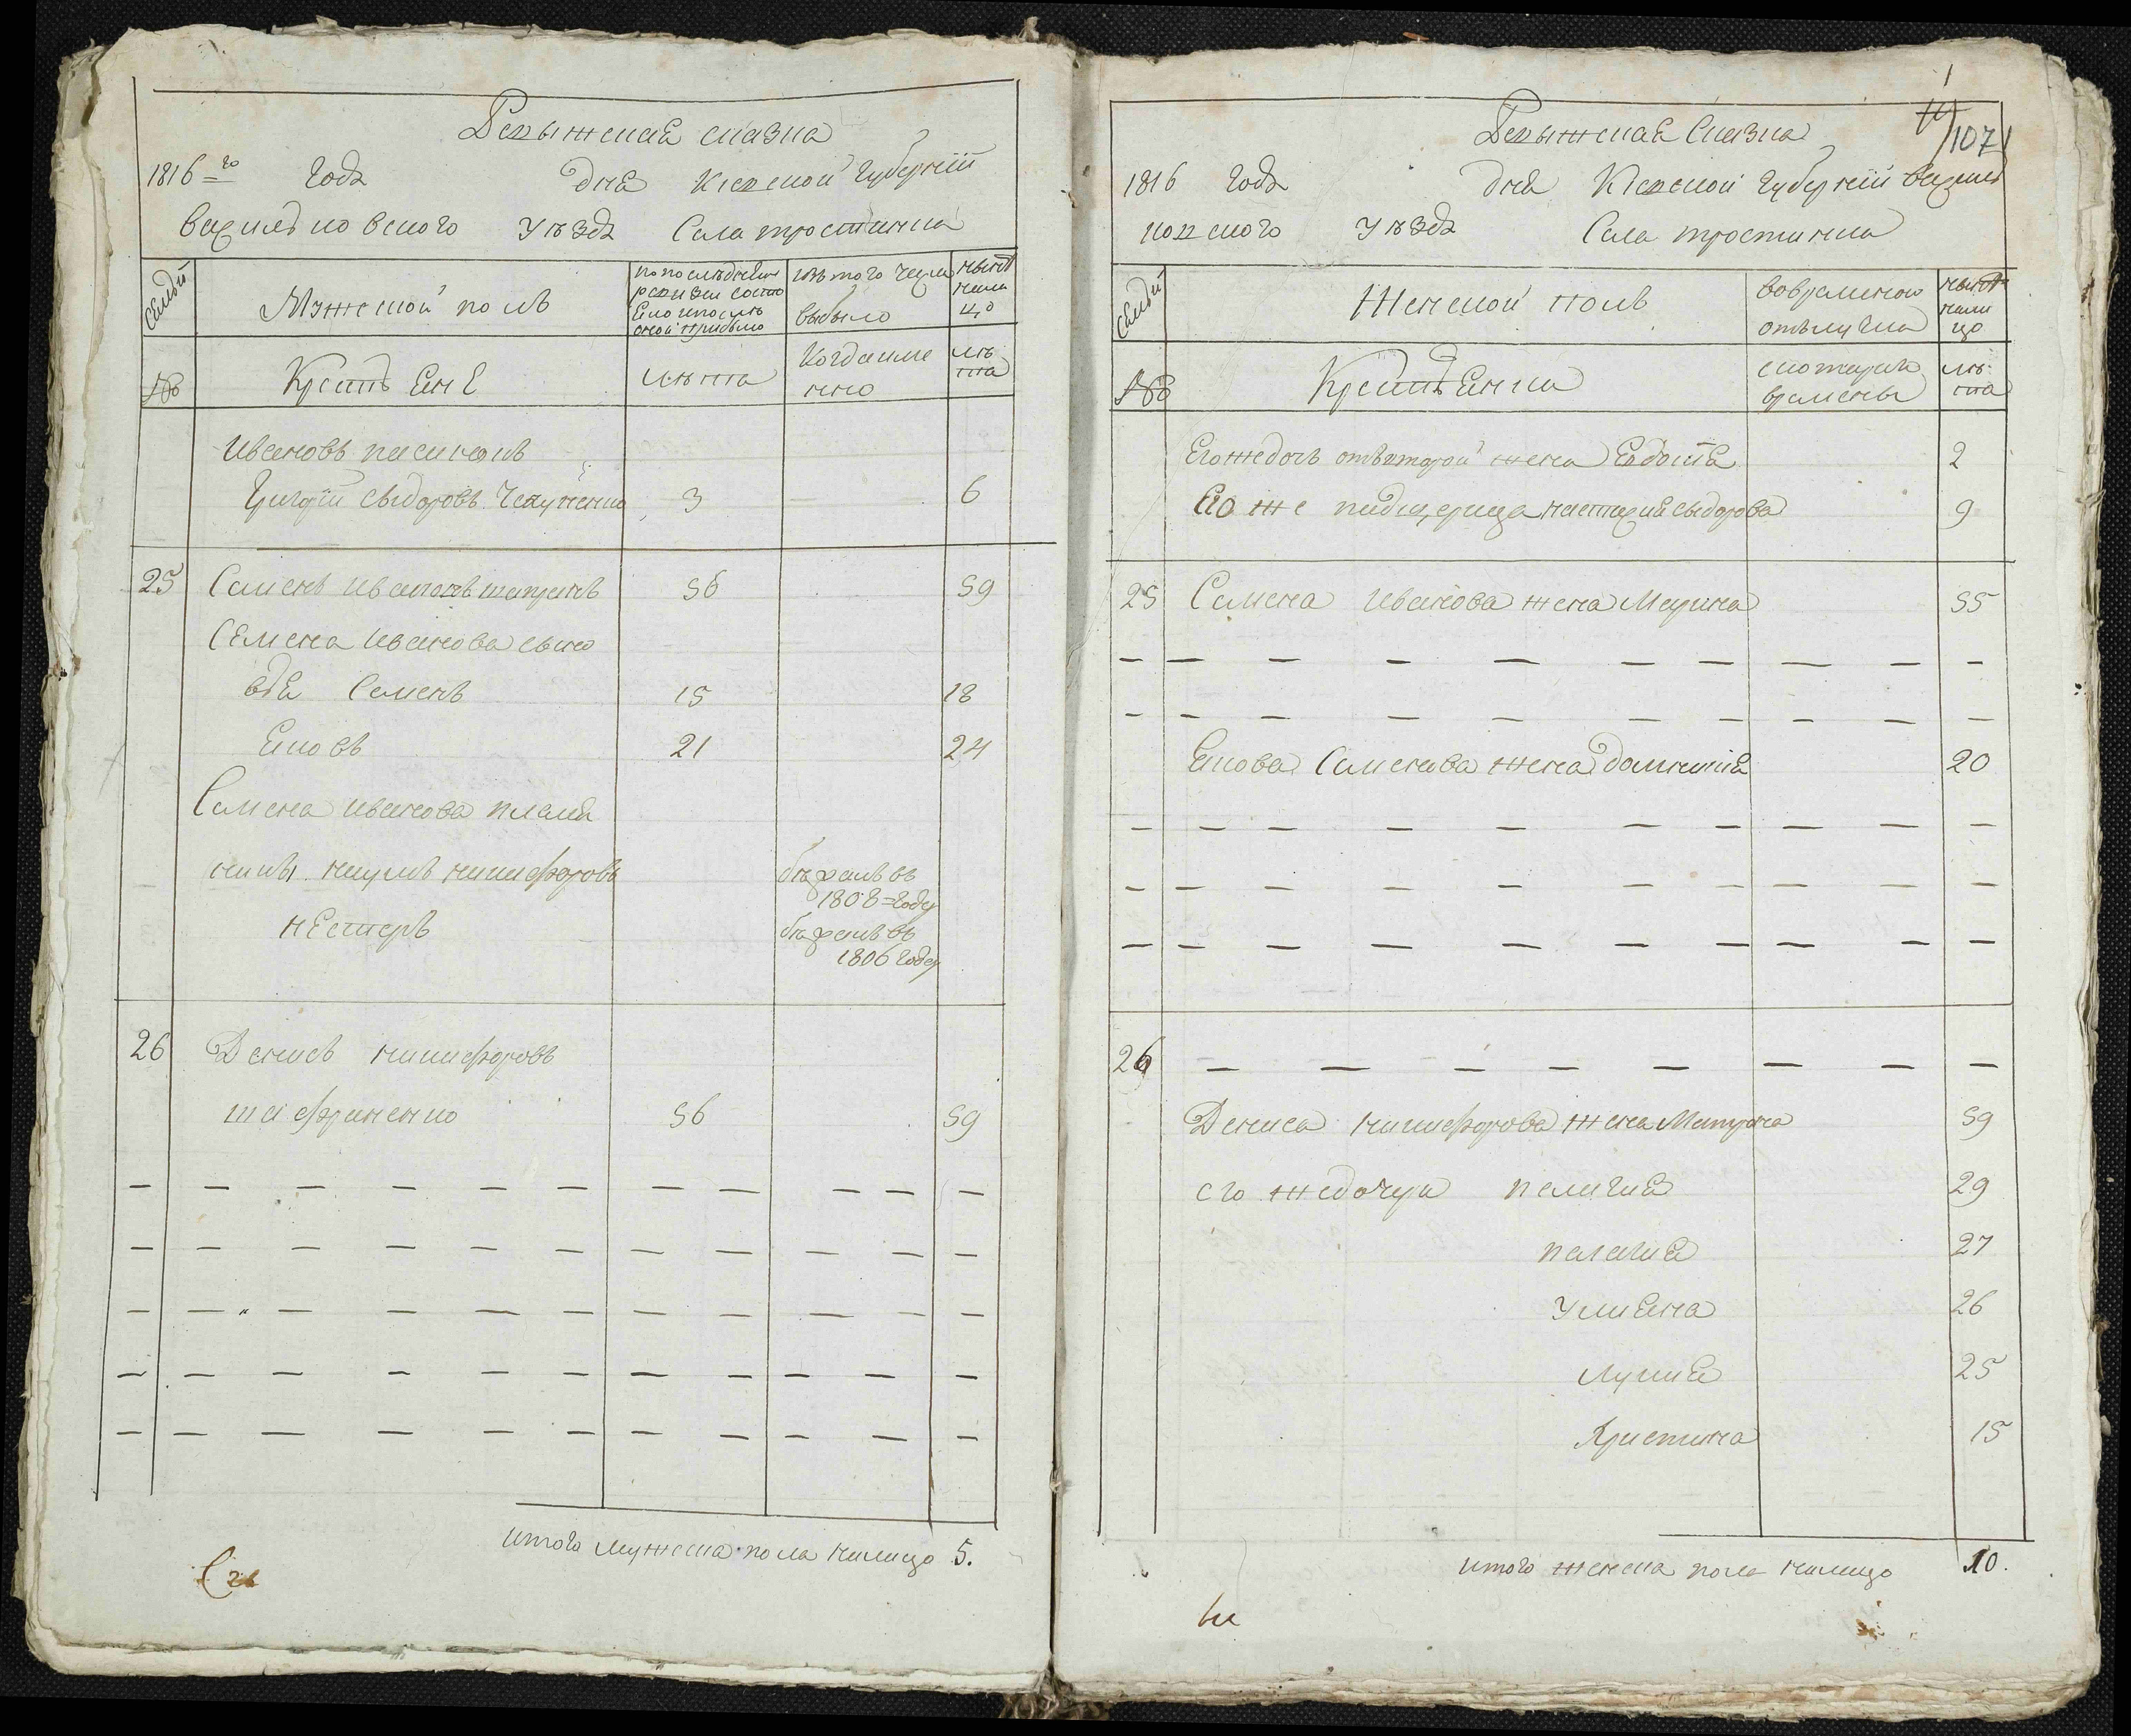 Ревыжская сказка
1816 го года дня Киевской губернїи
васильковского уѣзда Села тростинки
Семьи
Мужеской полъ
по последней ревизи состояло и после оной прибыло
изъ того числа выбыло
ныне на лицо
№
Крестьяне
лѣта
Когда именно
лѣта
Ивановъ пасинокъ
Григорїй сыдоровъ
3
6
25 Семенъ Ивановъ
56
59
Семена Иванова сыно
вья Семенъ
15
18
Яковъ
21
24
Семена Иванова племя
ники. наумъ никифоровъ
бѣжалъ въ
1808=году
нестеръ
бѣжалъ въ
1806 году
26 Денисъ никифоровъ
шафраненко
56
59
Итого мужеска пола налицо 5.
1
107
Ревыжская Сказка
1816 года дня Киевской губернїи василь
ковского уѣзда Села тростинки
Семьи
Женской полъ
во временной отлучке
ныне на лицо
№
Крестьянки
с котораго времены
лѣта
Его же дочь отъ второй жены Евдокїя
2
Его же падщерица настасия сыдорова
9
25 Семена Иванова жена Марина
55
Якова Семенова жена Домникия
20
26
Дениса никифорова жена Матрона
59
его же дочери пелагия
29
палагия
27
Улияна
26
Лукия
25
Христина
15
Итого женска пола налицо 10.